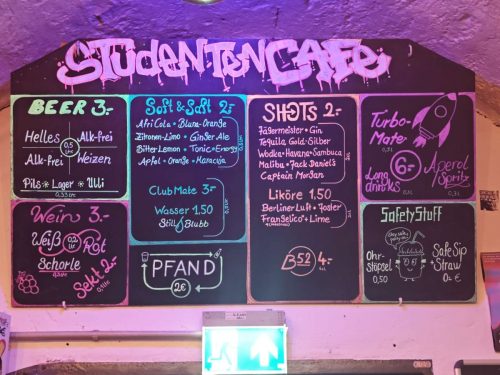 STUDENTENCAFE
BEER 3.-
Helles
0,5 Ltr
Alk-frei
Alk-frei
Weizen
Pils • Lager • Ulli
0,33 Ltr
Wein 3.-
Weiß
0,2 Ltr
Rot
Schorle
Sekt 2.-
Soft & Saft 2.-
Afri Cola • Blutu-Oranße
Zitronen-Limo • Ginger Ale
Bitter Lemon • Tonic • Energy
Apfel • Oranße • Maracuja
Club Mate 3.-
Wasser 1.50
Still Blubb
PFAND
2€
SHOTS 2.-
Jägermeister • Gin
Tequila Gold • Silber
Wodka • Havana • Sambuca
Malibu • Jack Daniel's
Captain Morgan
Liköre 1.50
Berliner Luft • Toster
Frangelico • Lime
B52 4.-
Turbo-
Mate
6.-
Long
drinks
Aperol
Spritz
0,3L
SafetyStuff
Ohr-
stöpsel
0,50
SafeSip
+ Straw
0.- €